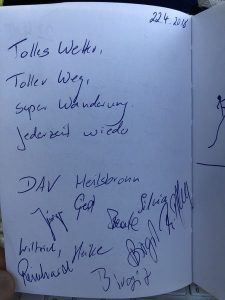 22.4.2018
Tolles Wetter,
Toller Weg,
super Wanderung.
jederzeit wieder
DAV Heilbronn
Jürgen Gerd Beate Silvia
Wiltrud, Heike Birgit
Reinhard Birgit